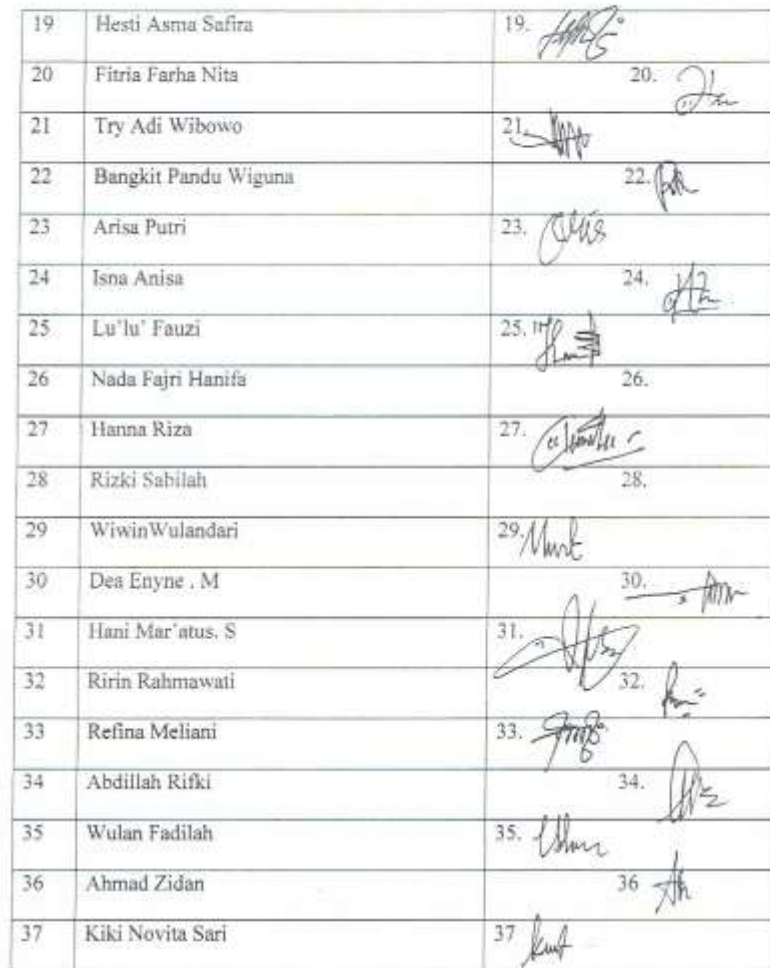 19 Hesti Asma Safira 19.
20 Fitria Farha Nita 20.
21 Try Adi Wibowo 21.
22 Bangkit Pandu Wiguna 22.
23 Arisa Putri 23.
24 Isna Anisa 24.
25 Lu'lu' Fauzi 25.
26 Nada Fajri Hanifa 26.
27 Hanna Riza 27.
28 Rizki Sabilah 28.
29 WiwinWulandari 29.
30 Dea Enyne . M 30.
31 Hani Mar'atus. S 31.
32 Ririn Rahmawati 32.
33 Refina Meliani 33.
34 Abdillah Rifki 34.
35 Wulan Fadilah 35.
36 Ahmad Zidan 36
37 Kiki Novita Sari 37